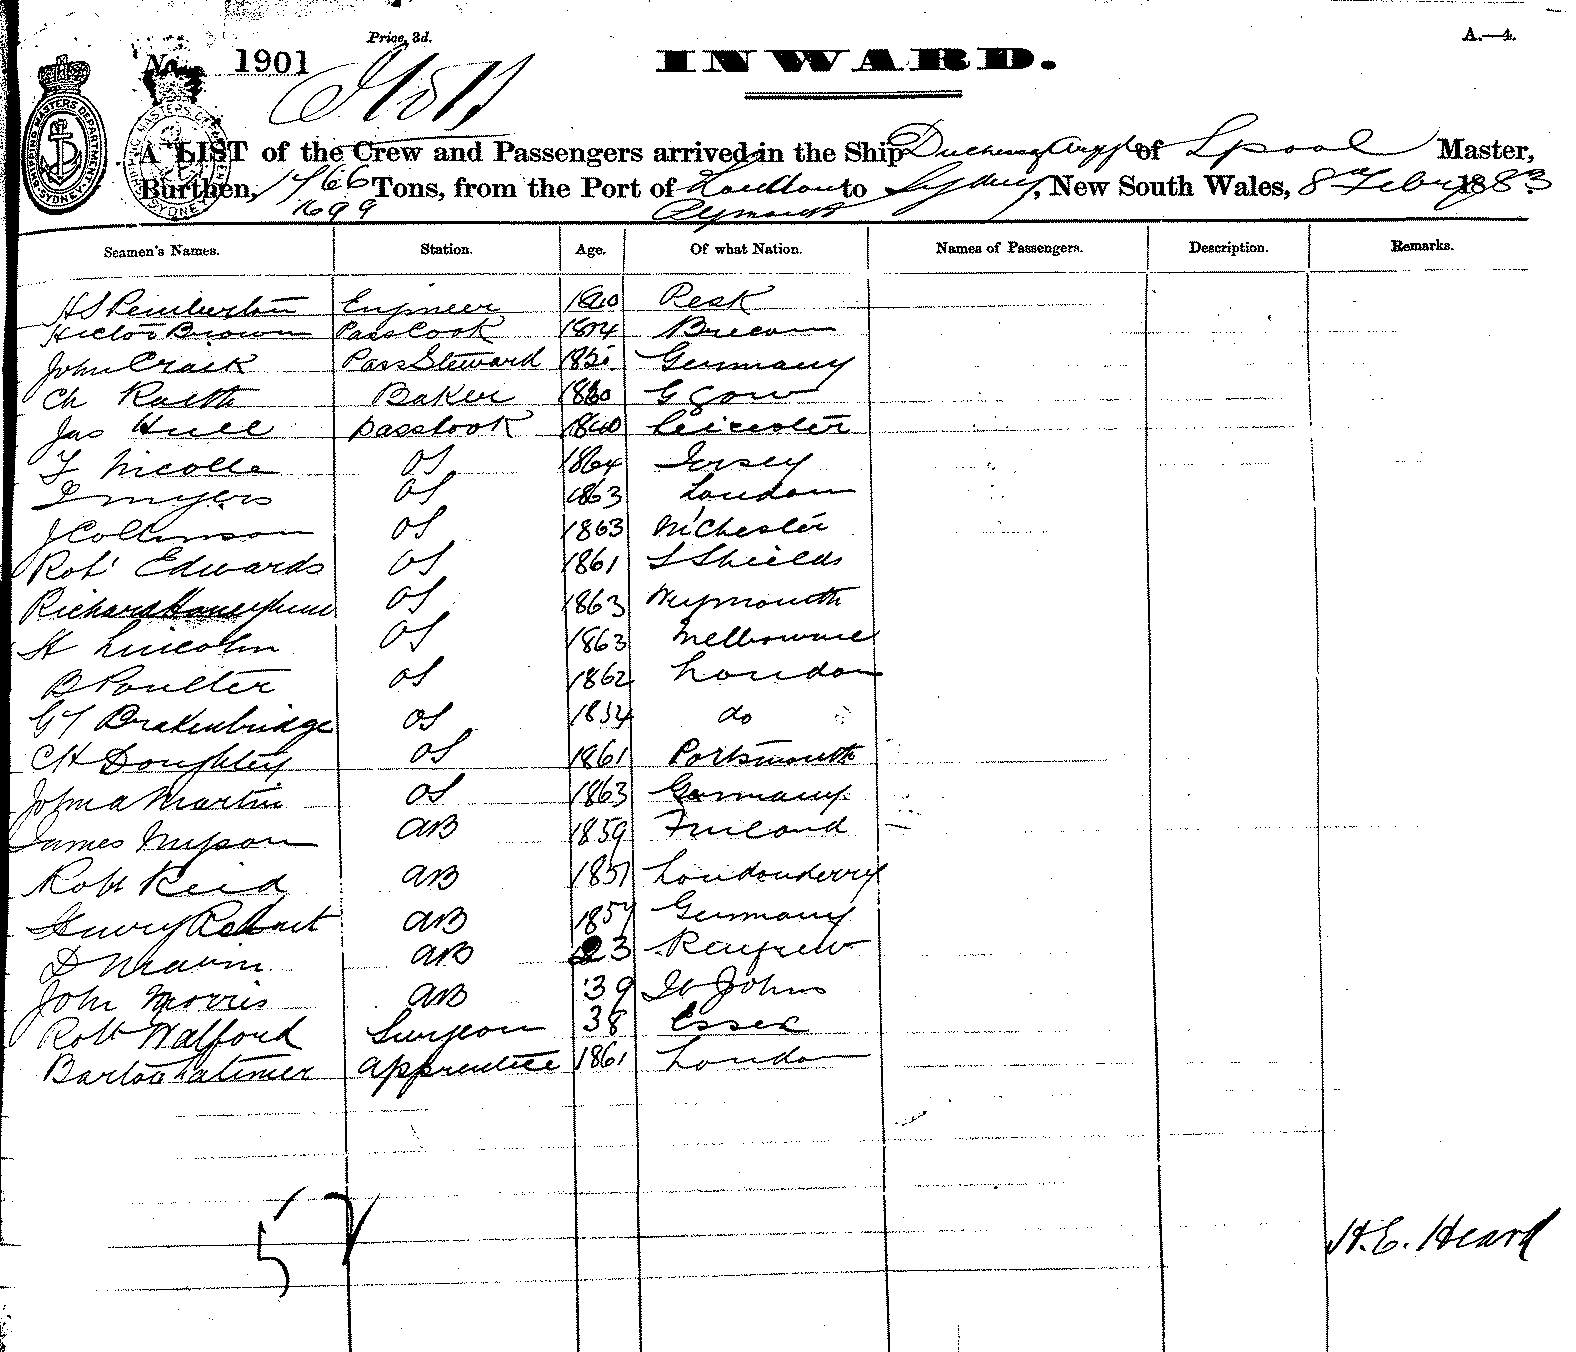 Price, 3d.
A.—4.
No. 1901
INWARD.
A LIST of the Crew and Passengers arrived in the Ship of Lpool Master,
Burthen, 1766 Tons, from the Port of London to Sydney, New South Wales, 8th Febry 1883
1699 Plymouth
Seamen's Names. Station. Age. Of what Nation. Names of Passengers. Description. Remarks.
H S Pemberton Engineer
Hector Brown Pass Cook Brecon
John Crack Pass Steward Germany
Ch Baker G Gow
Jas Hull Passcook 1840 Leicester
F Nicolle OS 1864 Jersey
Myers OS 1863 London
J Collinson OS 1863 M'Chester
Robt Edwards OS 1861 S Shields
Richard OS 1863 Weymouth
H Lincoln OS 1863 Melbourne
B Poulter OS 1862 London
G T Brakenbridge OS 1854 do
C H Doughty OS 1861 Portsmouth
John a Martin OS 1863 Germany
James AB 1859 Finland
Robt Reid AB 1851 Londonderry
Henry AB 1857 Germany
D AB 23 Renfrew
John Morris AB 39 St Johns
Robt Walford Surgeon 38 Essex
Bartoo Latimer apprentice 1861 London
57
H. E. Heard